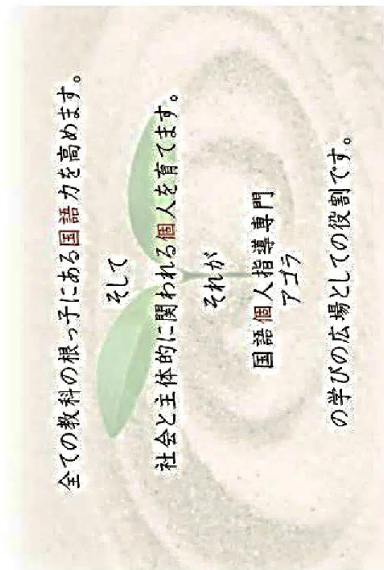 全ての教科の根っ子にある国語力を高めます。
そして
社会と主体的に関われる個人を育てます。
それが
国語個人指導専門
アゴラ
の学びの広場としての役割です。